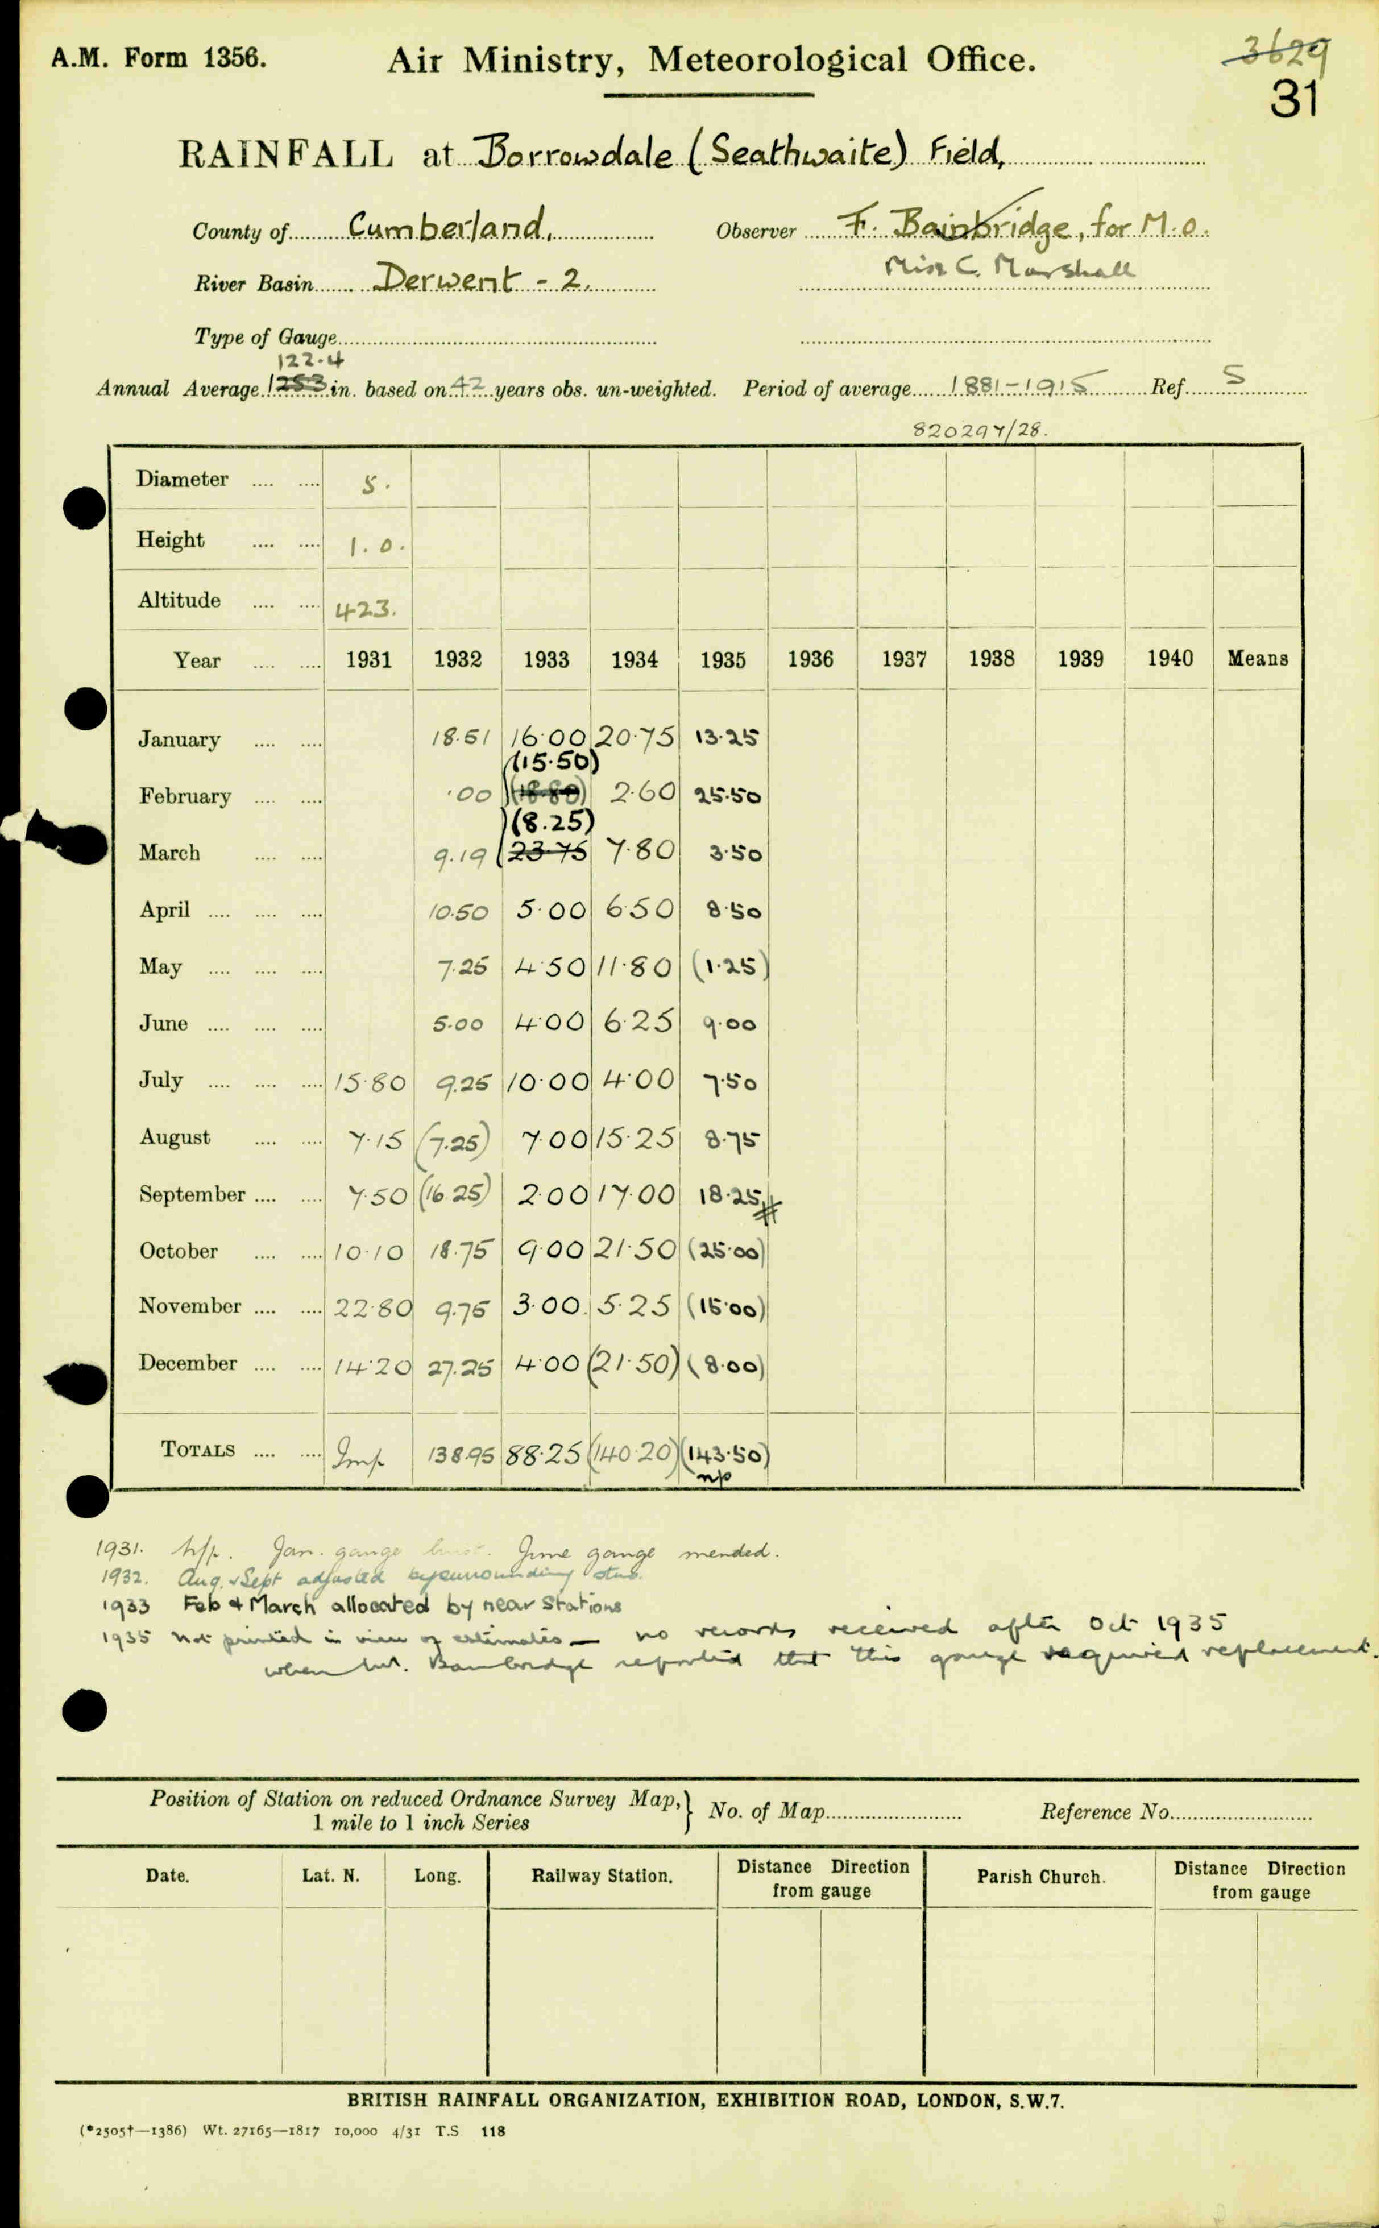 A.M. Form 1356. Air Ministry, Meteorological Office. 3629
31
RAINFALL at Borrowdale (Seathwaite) Field,
County of Cumberland, Observer F. Bainbridge, for M.O.
River Basin Derwent - 2. Miss C. Marshall
Type of Gauge
122.4
Annual Average 1253 in. based on 42 years obs. un-weighted. Period of average 1881-1915 Ref. S
820297/28.
Diameter .... .... 5.
Height .... .... 1.0.
Altitude .... .... 423.
Year .... .... 1931 1932 1933 1934 1935 1936 1937 1938 1939 1940 Means
January .... .... 18.51 16.00 20.75 13.25
(15.50)
February .... .... .00 (18.80) 2.60 25.50
(8.25)
March .... .... 9.19 23.75 7.80 3.50
April .... .... .... 10.50 5.00 6.50 8.50
May .... .... .... 7.25 4.50 11.80 (1.25)
June .... .... .... 5.00 4.00 6.25 9.00
July .... .... .... 15.80 9.25 10.00 4.00 7.50
August .... .... 7.15 (7.25) 7.00 15.25 8.75
September .... .... 7.50 (16.25) 2.00 17.00 18.25 #
October .... .... 10.10 18.75 9.00 21.50 (25.00)
November .... .... 22.80 9.75 3.00 5.25 (15.00)
December .... .... 14.20 27.25 4.00 (21.50) (8.00)
TOTALS .... .... Imp 138.95 88.25 (140.20) (143.50)
np
1931. Jan. gauge June gauge mended.
1932. Aug. & Sept adjusted by surrounding stns.
1933 Feb & March allocated by near Stations
1935 Not printed in view of estimates — no records received after Oct 1935
when Mr. Bainbridge reported that this gauge required replacement.
Position of Station on reduced Ordnance Survey Map, } No. of Map Reference No.
1 mile to 1 inch Series
Date. Lat. N. Long. Railway Station. Distance Direction from gauge Parish Church. Distance Direction from gauge
BRITISH RAINFALL ORGANIZATION, EXHIBITION ROAD, LONDON, S.W.7.
(*2505†—1386) Wt. 27165—1817 10,000 4/31 T.S 118